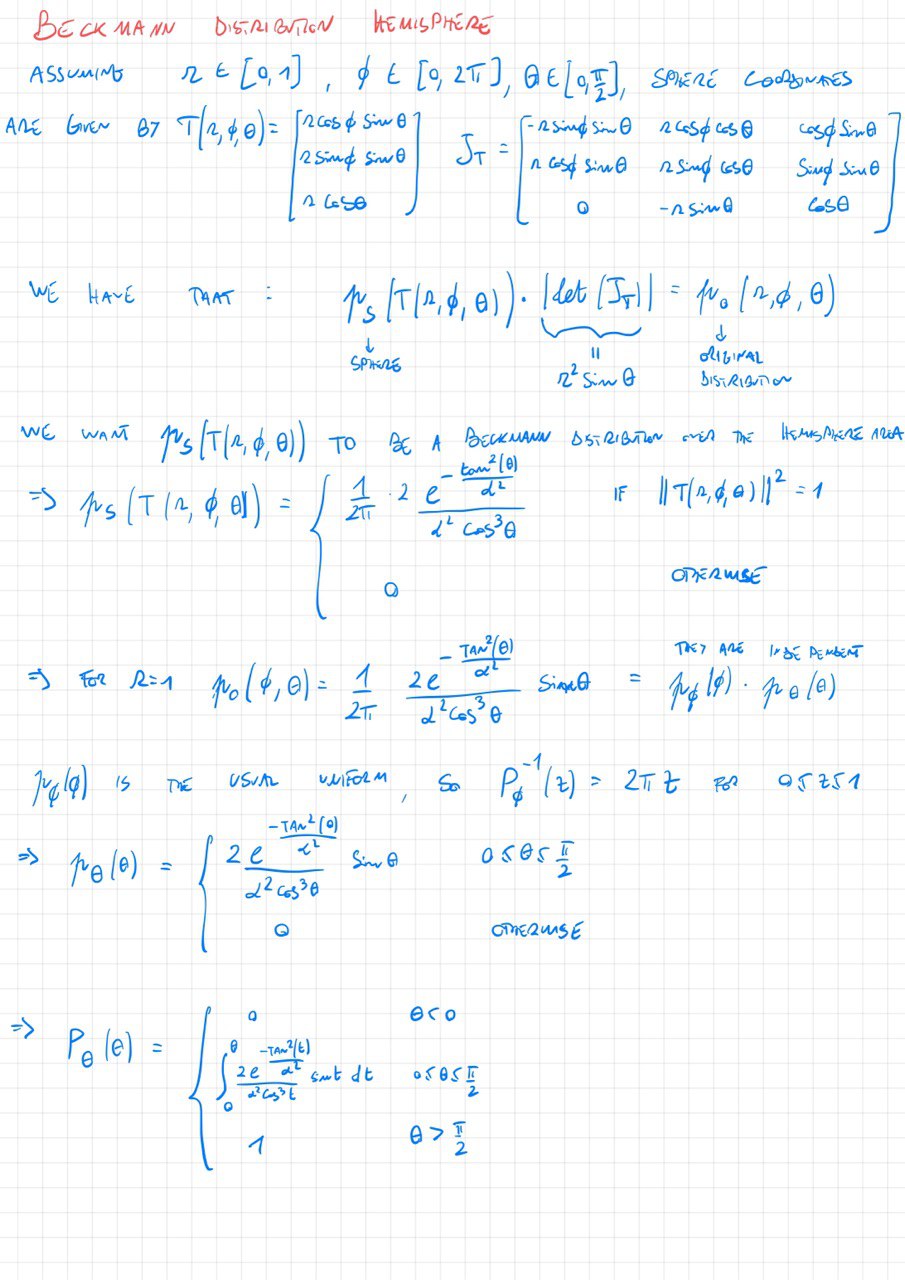 BECKMANN DISTRIBUTION HEMISPHERE
ASSUMING r ∈ [0,1], φ ∈ [0, 2π], θ ∈ [0, π/2], SPHERE COORDINATES
ARE GIVEN BY T(r,φ,θ) = [r cosφ sinθ; r sinφ sinθ; r cosθ] J_T = [-r sinφ sinθ, r cosφ cosθ, cosφ sinθ; r cosφ sinθ, r sinφ cosθ, sinφ sinθ; 0, -r sinθ, cosθ]
WE HAVE THAT : p_S(T(r,φ,θ)) · |det(J_T)| = p_o(r,φ,θ)
↓ SPHERE = r² sinθ ↓ ORIGINAL DISTRIBUTION
WE WANT p_S(T(r,φ,θ)) TO BE A BECKMANN DISTRIBUTION OVER THE HEMISPHERE AREA
⇒ p_S(T(r,φ,θ)) = { 1/(2π) · 2 e^(-tan²(θ)/α²) / (α² cos³θ) IF ||T(r,φ,θ)||² = 1
0 OTHERWISE
THEY ARE INDEPENDENT
⇒ FOR r=1 p_o(φ,θ) = 1/(2π) 2e^(-TAN²(θ)/α²) / (α² cos³θ) sinθ = p_φ(φ) · p_θ(θ)
p_φ(φ) IS THE USUAL UNIFORM, SO P_φ^(-1)(z) = 2π z FOR 0≤z≤1
⇒ p_θ(θ) = { 2e^(-TAN²(θ)/α²) / (α² cos³θ) sinθ 0≤θ≤π/2
0 OTHERWISE
⇒ P_θ(θ) = { 0 θ<0
∫_0^θ 2e^(-TAN²(t)/α²) / (α² cos³t) sint dt 0≤θ≤π/2
1 θ>π/2